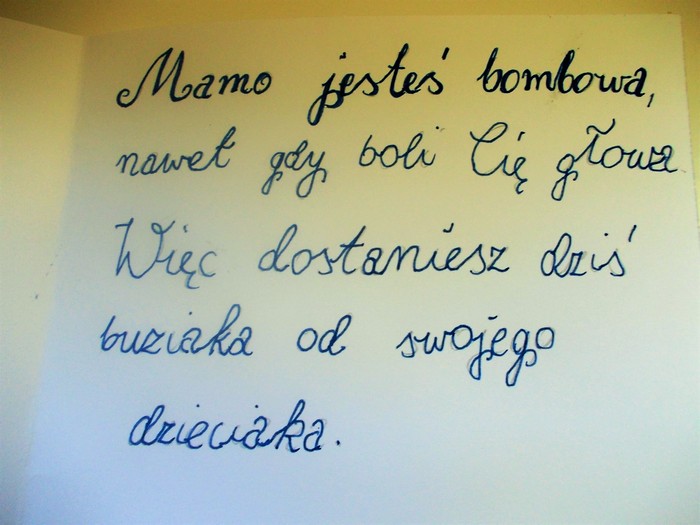 Mamo jesteś bombowa,
nawet gdy boli Cię głowa
Więc dostaniesz dziś
buziaka od swojego
dzieciaka.